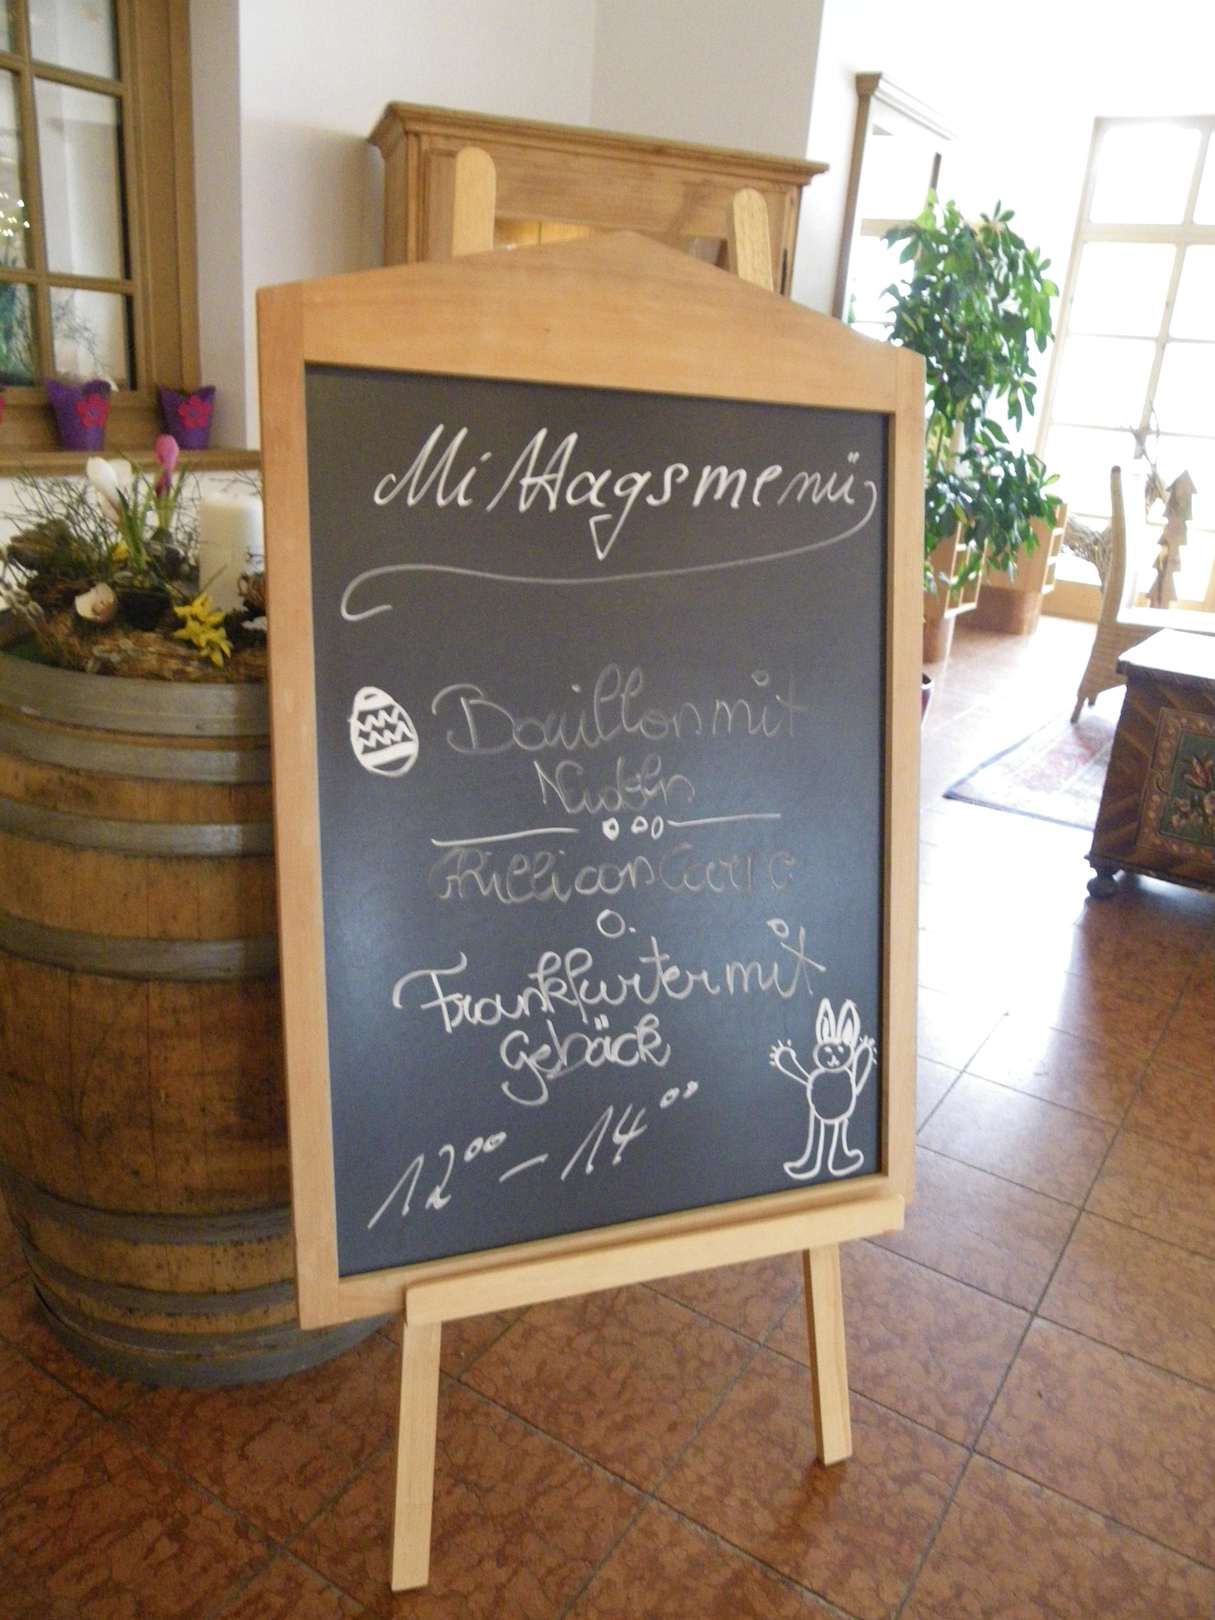 Mittagsmenü
Bouillon mit
Nudeln
Chilli con Carne
o.
Frankfurter mit
Gebäck
12⁰⁰ - 14⁰⁰